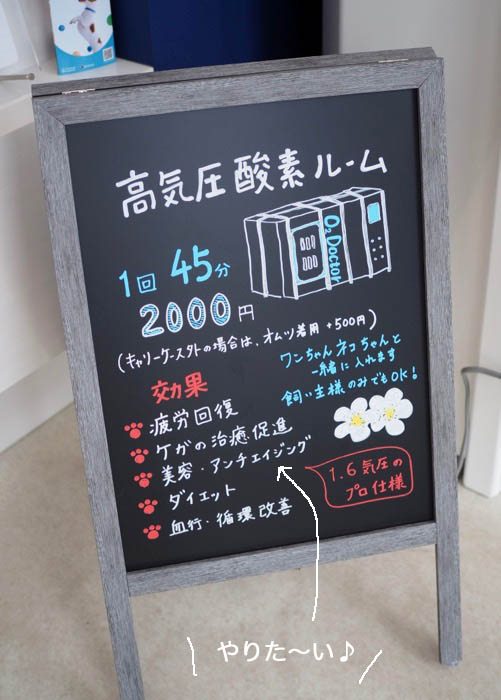 高気圧酸素ルーム
O2 Doctor
1回 45分
2000円
(キャリーケース外の場合は、オムツ着用 +500円)
ワンちゃんネコちゃんと
一緒に入れます
飼い主様のみでもOK!
効果
疲労回復
ケガの治癒促進
美容・アンチエイジング
ダイエット
血行・循環改善
1.6気圧の
プロ仕様
やりた〜い♪